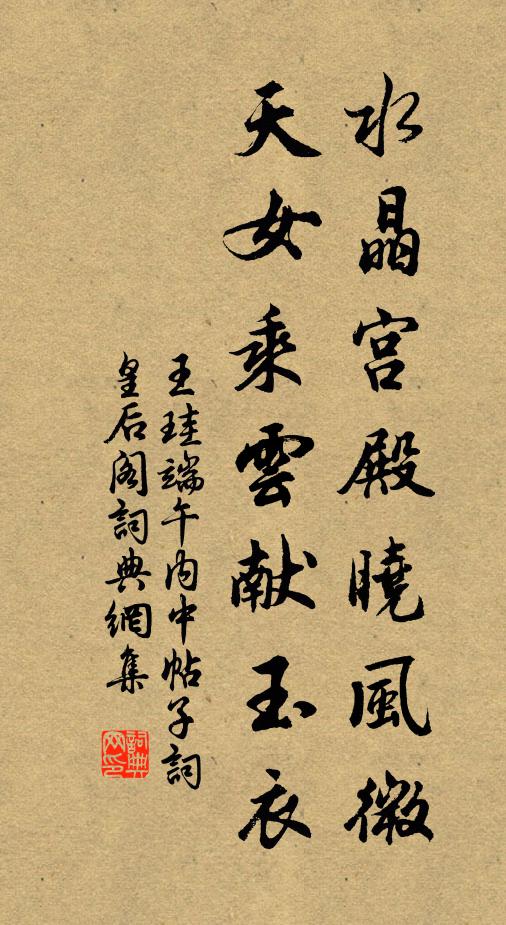 水晶宫殿曉風微
天女乘雲献玉衣
王珪端午内中帖子詞
皇后阁詞典網集
詞典网印